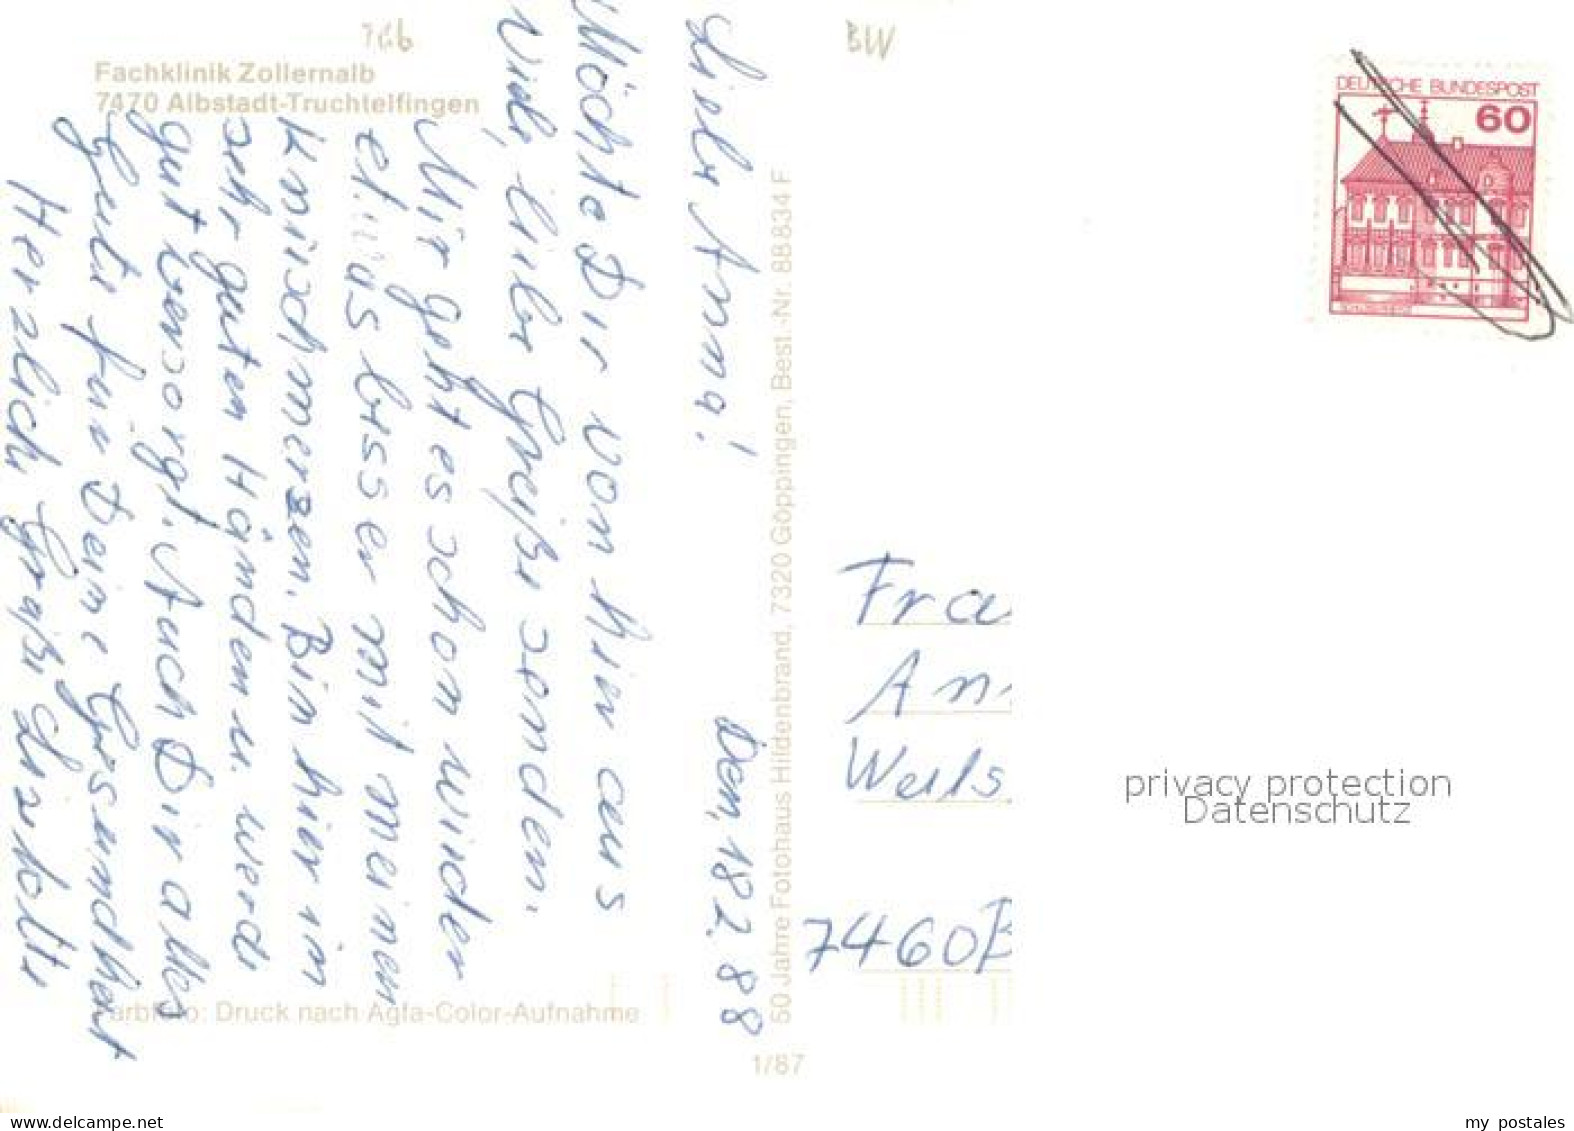 Tüb
BW
Fachklinik Zollernalb
7470 Albstadt-Truchtelfingen
DEUTSCHE BUNDESPOST
60
Den, 18.2.88
Liebe Anna!
Möchte Dir von hier aus
viele, liebe Grüße senden.
Mir geht es schon wieder
etwas besser mit meinen
Knieschmerzen. Bin hier in
sehr guten Händen u. werde
gut versorgt. Auch Dir alles
Gute für Deine Gesundheit
Herzlich Grüße Liselotte
50 Jahre Fotohaus Hildenbrand, 7320 Göppingen, Best.-Nr. 88 834 F
Fra
An
Weils
7460 B
privacy protection
Datenschutz
arbfoto: Druck nach Agfa-Color-Aufnahme
1/87
www.delcampe.net
my_postales